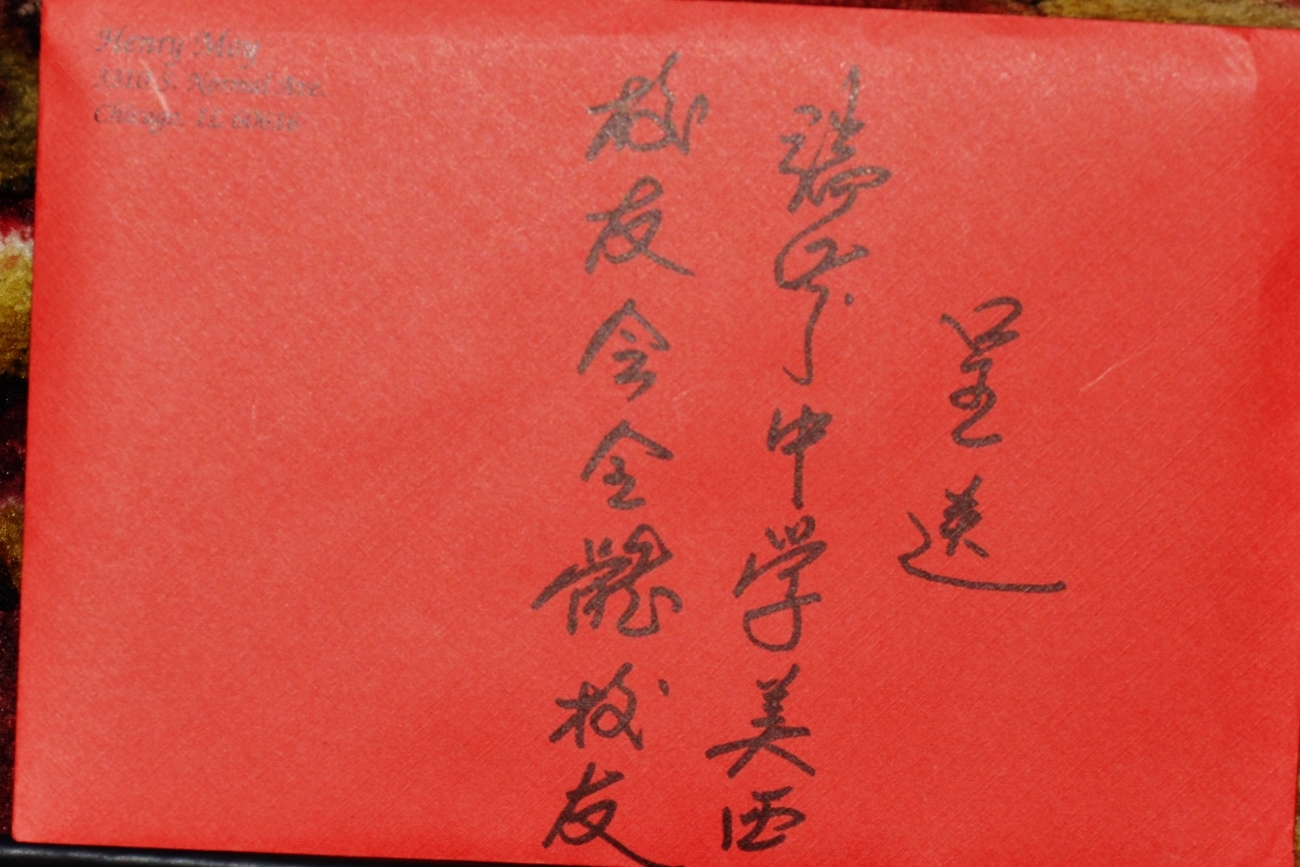 Henry Moy
S. Normal Ave.
Chicago, IL 60616
呈送
端芬中学美西
校友会全體校友